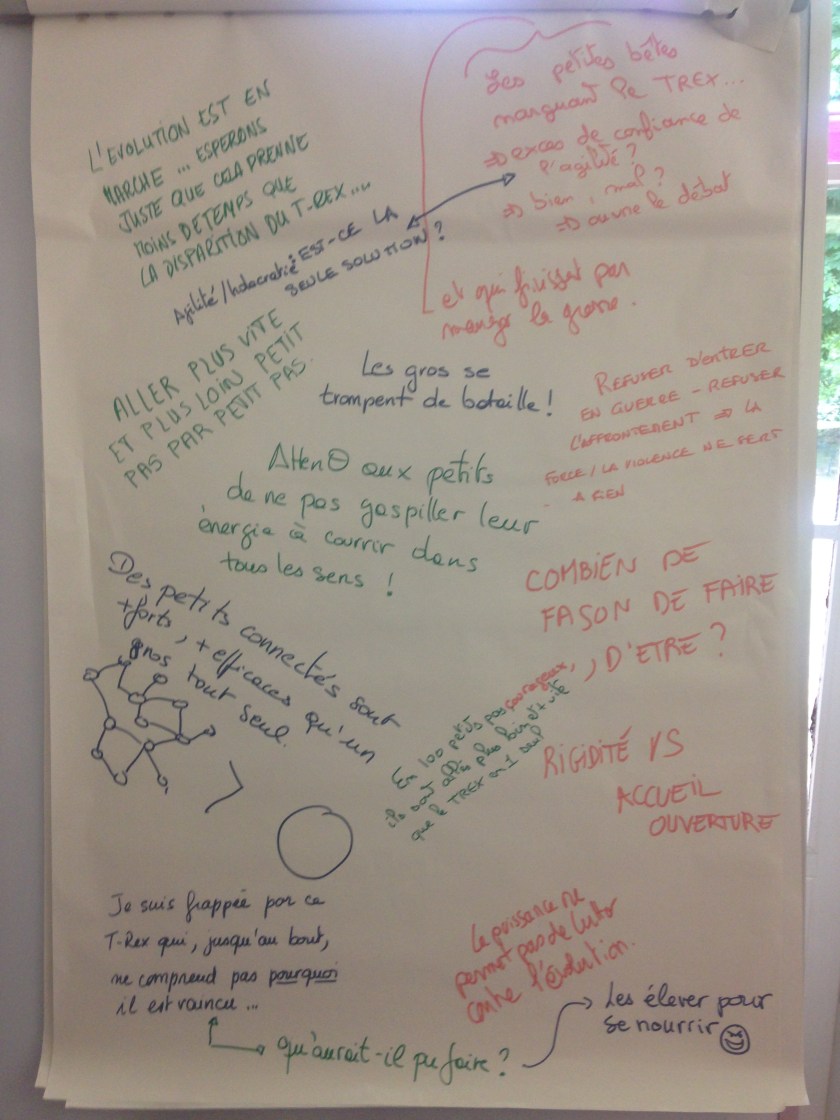 L'EVOLUTION EST EN
MARCHE ... ESPERONS
JUSTE QUE CELA PRENNE
MOINS DE TEMPS QUE
LA DISPARITION DU T-REX....
Les petites bêtes
manguant le TREX...
⇒ exces de confiance de
l'agilité ?
⇒ bien, mal ?
⇒ ouvre le débat
et qui finissent par
manger la grosse.
Agilité/holacratie : EST-CE LA
SEULE SOLUTION ?
ALLER PLUS VITE
ET PLUS LOIN PETIT
PAS PAR PETIT PAS.
Les gros se
trompent de bataille !
REFUSER D'ENTRER
EN GUERRE - REFUSER
L'AFFRONTEMENT ⇒ LA
FORCE / LA VIOLENCE NE SERT
A RIEN
Atten⊖ aux petits
de ne pas gaspiller leur
énergie à courrir dans
tous les sens !
COMBIEN DE
FASON DE FAIRE
, D'ETRE ?
Des petits connectés sont
+ forts, + efficaces qu'un
gros tout seul.
>
En 100 petits pas courageux,
ils sont allés plus loin et + vite
que le TREX en 1 seul
RIGIDITÉ VS
ACCUEIL
OUVERTURE
Je suis frappée par ce
T-Rex qui, jusqu'au bout,
ne comprend pas pourquoi
il est vaincu ...
La puissance ne
permet pas de lutter
contre l'évolution.
qu'aurait-il pu faire ?
Les élever pour
se nourrir